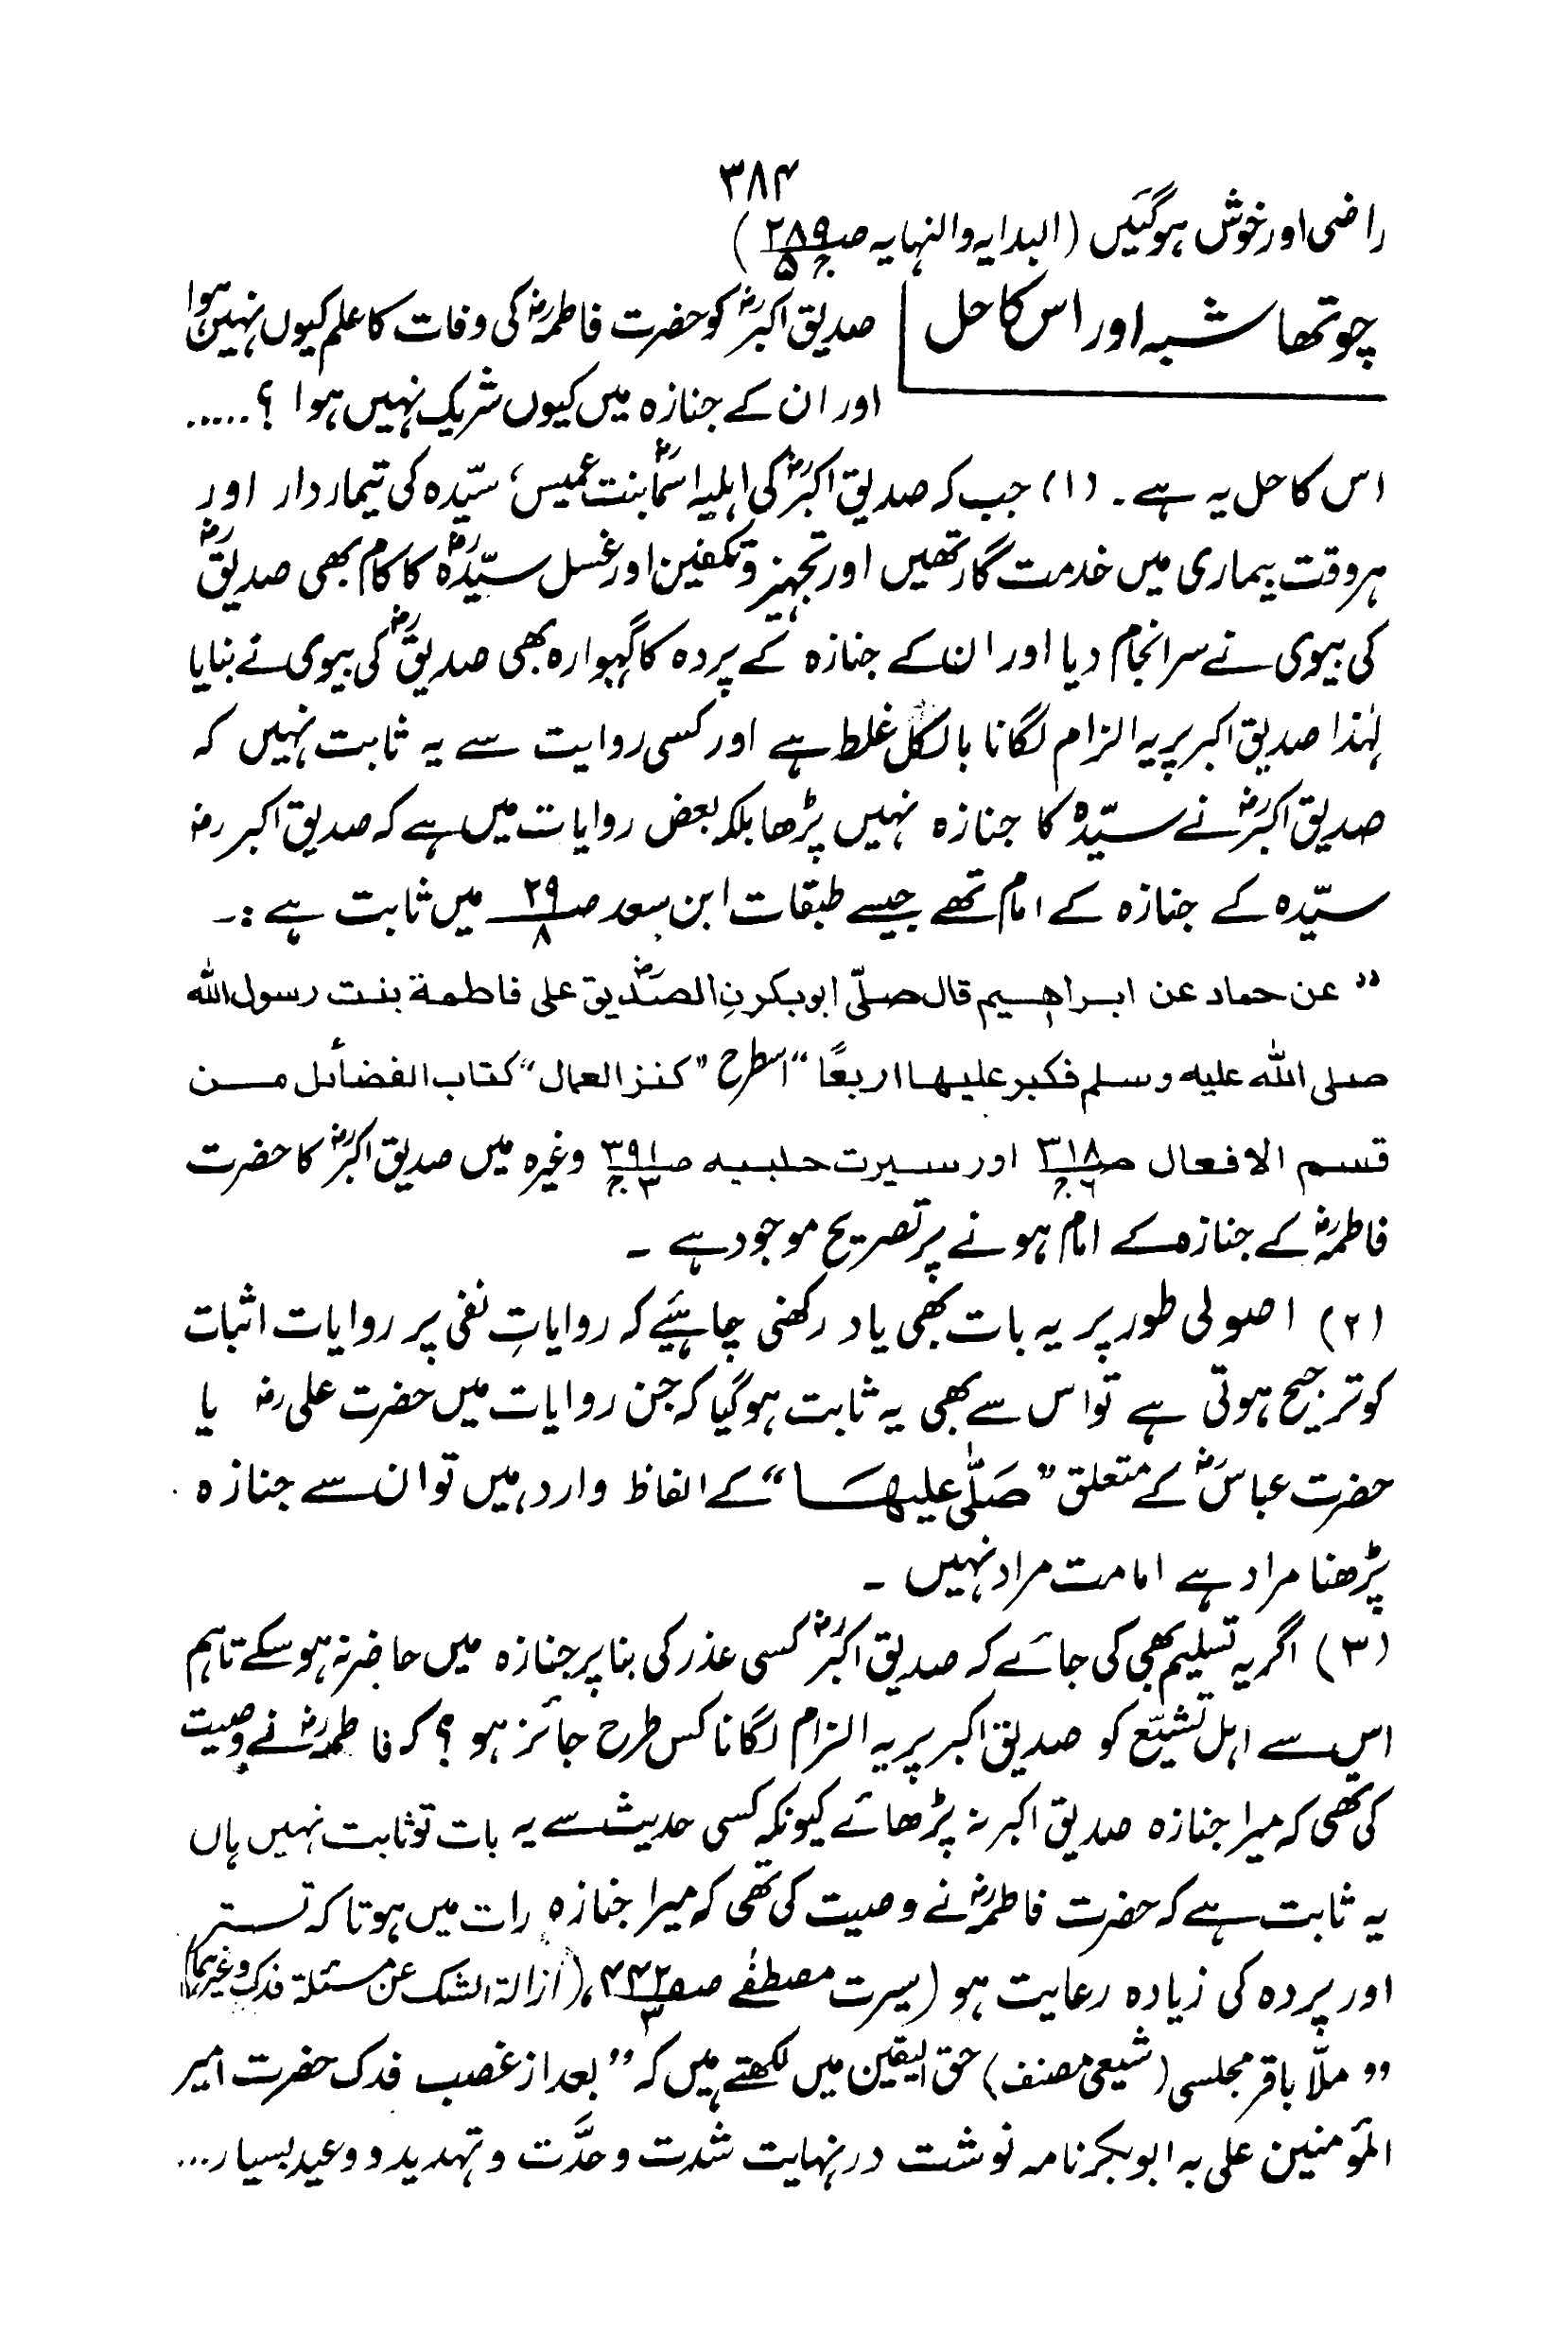 ۳۸۴
راضی اور خوش ہوگئیں (البدایہ والنہایہ صـ۲۸۹ جـ۵)
چوتھا شبہ اور اس کا حل صدیق اکبرؓ کو حضرت فاطمہؓ کی وفات کا علم کیوں نہیں ہوا
اور ان کے جنازہ میں کیوں شریک نہیں ہوا ؟.....
اس کا حل یہ ہے۔ (۱) جب کہ صدیق اکبرؓ کی اہلیہ اسماؓ بنت عمیس، سیّدہ کی تیماردار اور
ہر وقت بیماری میں خدمت گار تھیں اور تجہیز و تکفین اور غسل سیّدہؓ کا کام بھی صدیقؓ
کی بیوی نے سرانجام دیا اور ان کے جنازہ کے پردہ کا گہوارہ بھی صدیقؓ کی بیوی نے بنایا
لہٰذا صدیق اکبر پر یہ الزام لگانا بالکل غلط ہے اور کسی روایت سے یہ ثابت نہیں کہ
صدیق اکبرؓ نے سیّدہؓ کا جنازہ نہیں پڑھا بلکہ بعض روایات میں ہے کہ صدیق اکبر رضؓ
سیّدہ کے جنازہ کے امام تھے جیسے طبقات ابن سعد صـ۲۹ ۸ میں ثابت ہے :۔
” عن حماد عن ابراهيم قال صلّى ابوبكرنِ الصّديقؓ على فاطمة بنت رسول الله
صلى الله عليه وسلم فكبر عليها اربعًا“ اسطرح ”کنز العمال“ کتاب الفضائل من
قسم الافعال صـ۳۱۸ جـ۶ اور سیرت حلبیہ صـ۳۹۱ جـ۳ وغیرہ میں صدیق اکبرؓ کا حضرت
فاطمہؓ کے جنازہ کے امام ہونے پر تصریح موجود ہے ۔
(۲) اصولی طور پر یہ بات بھی یاد رکھنی چاہئیے کہ روایاتِ نفی پر روایات اثبات
کو ترجیح ہوتی ہے تو اس سے بھی یہ ثابت ہوگیا کہ جن روایات میں حضرت علی رضؓ یا
حضرت عباسؓ کے متعلق ”صَلّٰی علیهَا“ کے الفاظ وارد ہیں تو ان سے جنازہ
پڑھنا مراد ہے امامت مراد نہیں ۔
(۳) اگر یہ تسلیم بھی کی جائے کہ صدیق اکبرؓ کسی عذر کی بنا پر جنازہ میں حاضر نہ ہوسکے تاہم
اس سے اہل تشیّع کو صدیق اکبر پر یہ الزام لگانا کس طرح جائز ہو ؟ کہ فاطمہؓ نے وصیت
کی تھی کہ میرا جنازہ صدیق اکبر نہ پڑھائے کیونکہ کسی حدیث سے یہ بات تو ثابت نہیں ہاں
یہ ثابت ہے کہ حضرت فاطمہؓ نے وصیت کی تھی کہ میرا جنازہ رات میں ہو تا کہ تستر
اور پردہ کی زیادہ رعایت ہو (سیرت مصطفٰے صـ۴۴۲ ۳، (ازالۃ الشک عن مسئلۃ فدک وغیرہما)
” ملّا باقر مجلسی (شیعی مصنف) حق الیقین میں لکھتے ہیں کہ ” بعد از غصب فدک حضرت امیر
المؤمنین علی بہ ابوبکر نامہ نوشت در نہایت شدت وحدّت و تہدید و وعید بسیار...